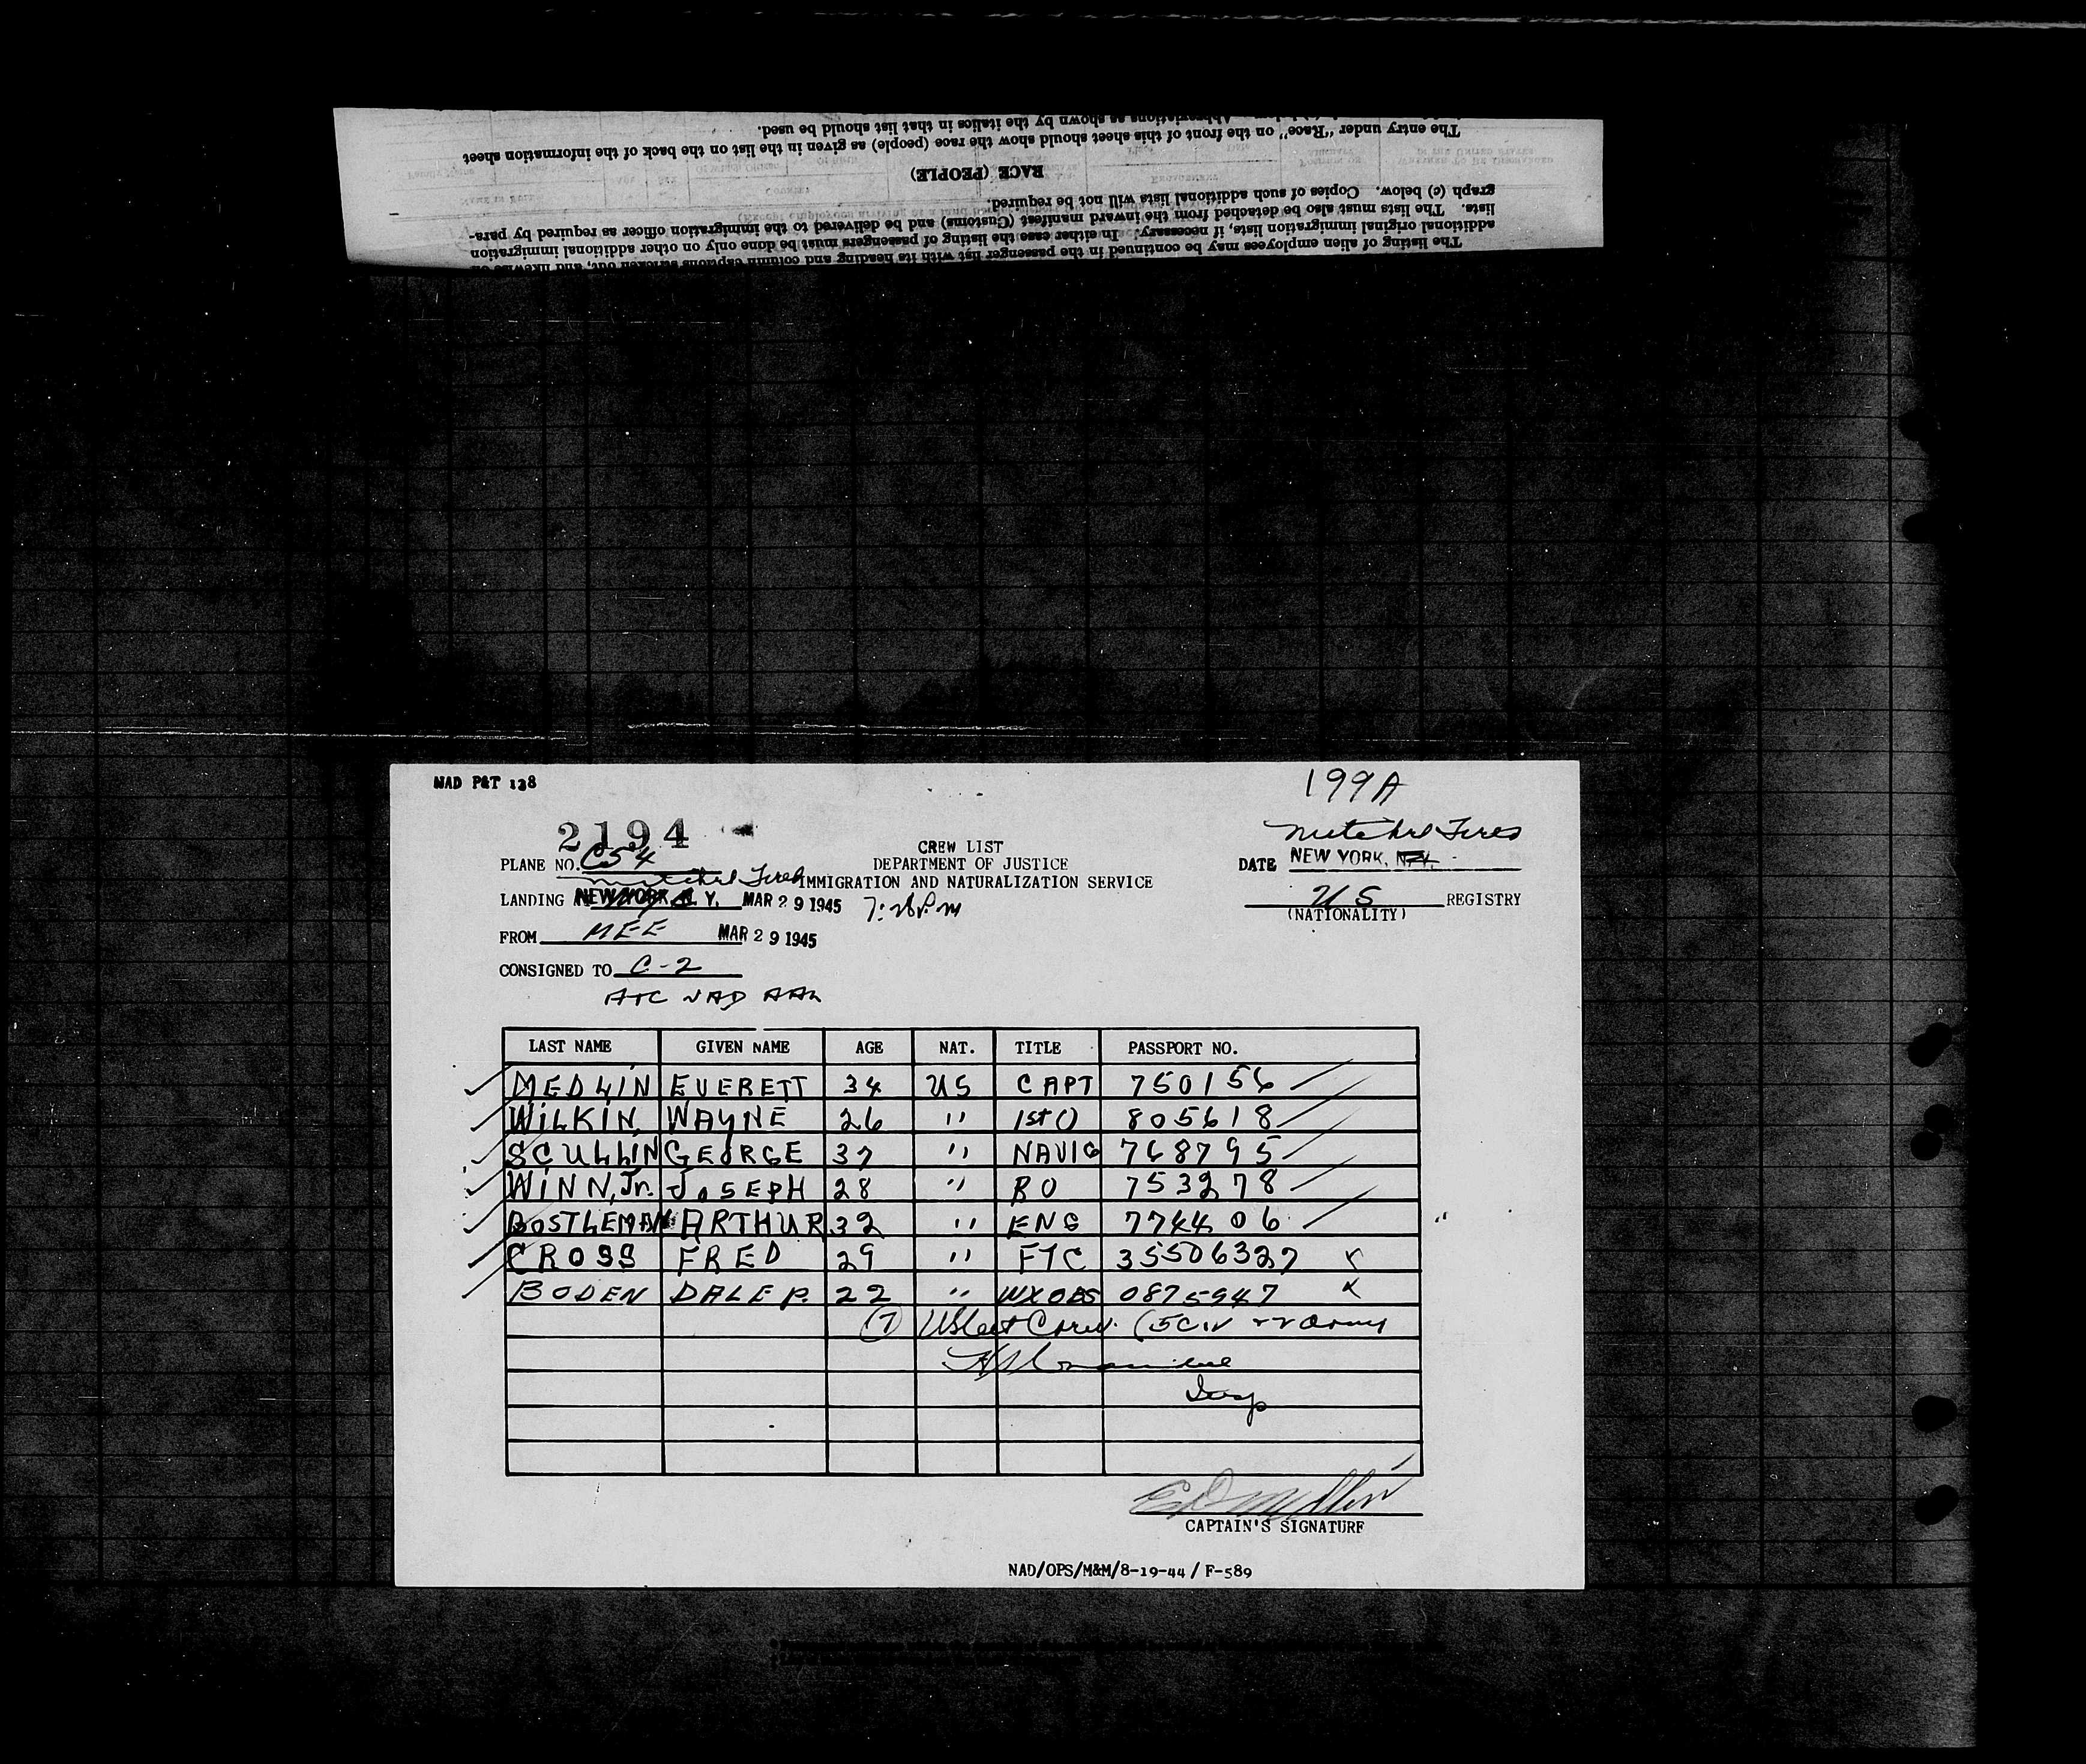 The listing of alien employees may be continued in the passenger list with its heading and column captions stricken out, and likewise
additional original immigration lists, if necessary. In either case the listing of passengers must be done only on other additional immigration
lists. The lists must also be detached from the inward manifest (Customs) and be delivered to the immigration officer as required by para-
graph (c) below. Copies of such additional lists will not be required.
RACE (PEOPLE)
The entry under "Race" on the front of this sheet should show the race (people) as given in the list on the back of the information sheet
Abbreviations as shown by the italics in that list should be used.
NAD P&T 138
199A
2194
CREW LIST
PLANE NO. C54
DEPARTMENT OF JUSTICE
DATE NEW YORK, N.Y.
IMMIGRATION AND NATURALIZATION SERVICE
LANDING NEW YORK N. Y. MAR 29 1945
US REGISTRY
(NATIONALITY)
FROM MEE MAR 29 1945
CONSIGNED TO C-2
ATC NAD AAL
LAST NAME GIVEN NAME AGE NAT. TITLE PASSPORT NO.
MEDLIN EVERETT 34 US CAPT 750156
WILKIN WAYNE 26 " 1st O 805618
SCULLIN GEORGE 37 " NAVIG 768795
WINN, Jr. JOSEPH 28 " RO 753278
BOSTLEMAN ARTHUR 32 " ENG 774406
CROSS FRED 29 " FTC 35506327
BODEN DALE P. 22 " WXOBS 0875947
(7)
Insp
CAPTAIN'S SIGNATURE
NAD/OPS/M&M/8-19-44 / F-589